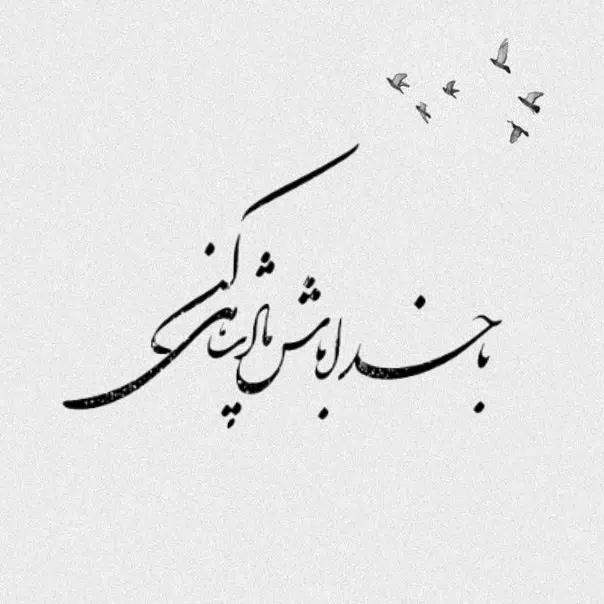 با خدا باش و پادشاهی کن